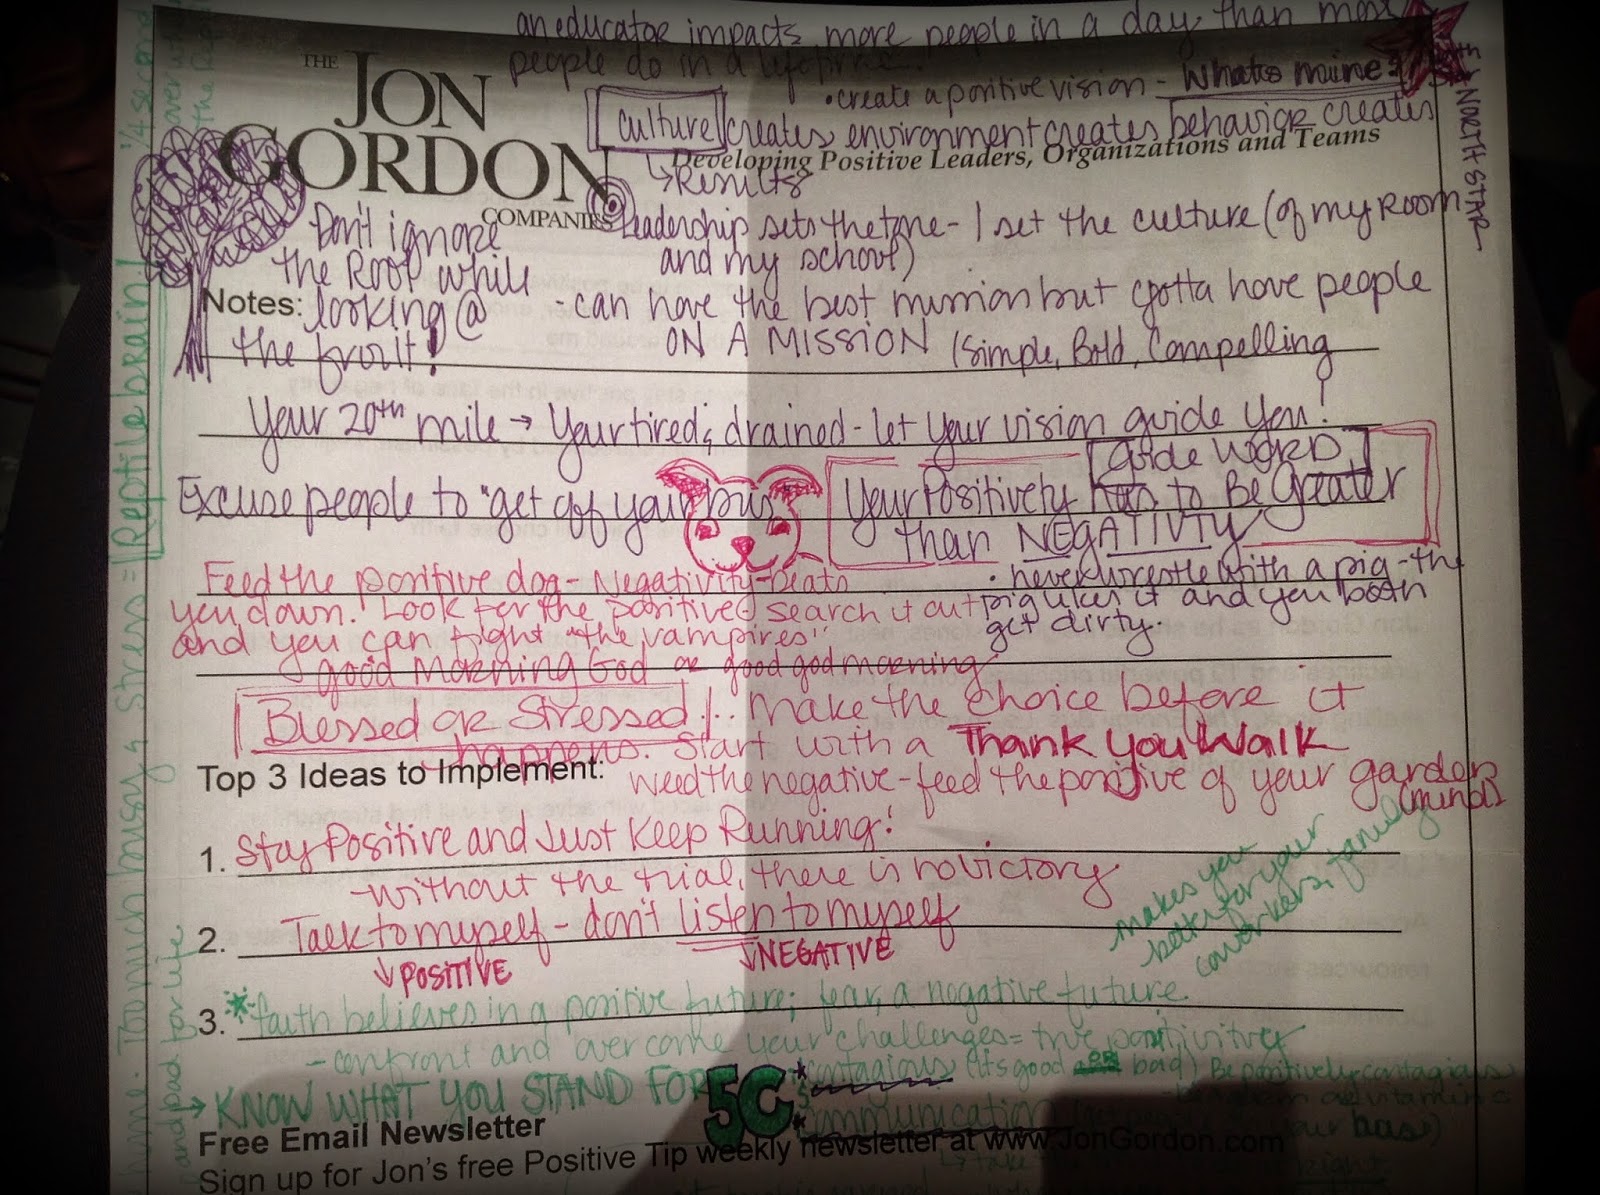 an educator impacts more people in a day than most
people do in a lifetime.
THE
JON
GORDON
COMPANIES
Developing Positive Leaders, Organizations and Teams
• create a positive vision - Whats mine?
NORTH STAR
culture creates environment creates behavior creates
↳ Results
Leadership sets the tone - I set the culture (of my room
and my school)
Don't ignore
the Root while
looking @
the fruit!
Notes:
- can have the best mission but gotta have people
ON A MISSION (Simple, Bold, Compelling
Your 20th mile → Your tired & drained - let your vision guide you!
Guide WORD
Excuse people to "get off your bus"
Your Positively has to Be Greater
than NEGATIVITY
Feed the positive dog - Negativity beats
you down. Look for the positive & search it out
and you can fight "the vampires"
• never wrestle with a pig - the
pig likes it and you both
get dirty.
good Morning God or good god morning
Blessed or Stressed! .. Make the choice before it
happens. Start with a Thank You Walk
Top 3 Ideas to Implement:
weed the negative - feed the positive of your garden
(mind)
1. Stay Positive and Just Keep Running!
- without the trial, there is no victory
2. Talk to myself - don't listen to myself
↳ POSITIVE
↳ NEGATIVE
makes you
better for your
coworkers, family
3. * faith believes in a positive future; fear, a negative future.
- confront and overcome your challenges = true positivity
→ KNOW WHAT YOU STAND FOR
5C
contagious (its good or bad) Be positively contagious
communication
Free Email Newsletter
Sign up for Jon's free Positive Tip weekly newsletter at www.JonGordon.com
Too much busy & Stress = Reptile brain!
1/4 second
and pad for life